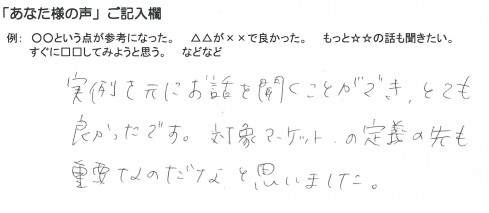 「あなた様の声」ご記入欄
例: 〇〇という点が参考になった。 △△が××で良かった。 もっと☆☆の話も聞きたい。
すぐに□□してみようと思う。 などなど
実例を元にお話を聞くことができ、とても
良かったです。対象マーケットの定義の先も
重要なのだな、と思いました。